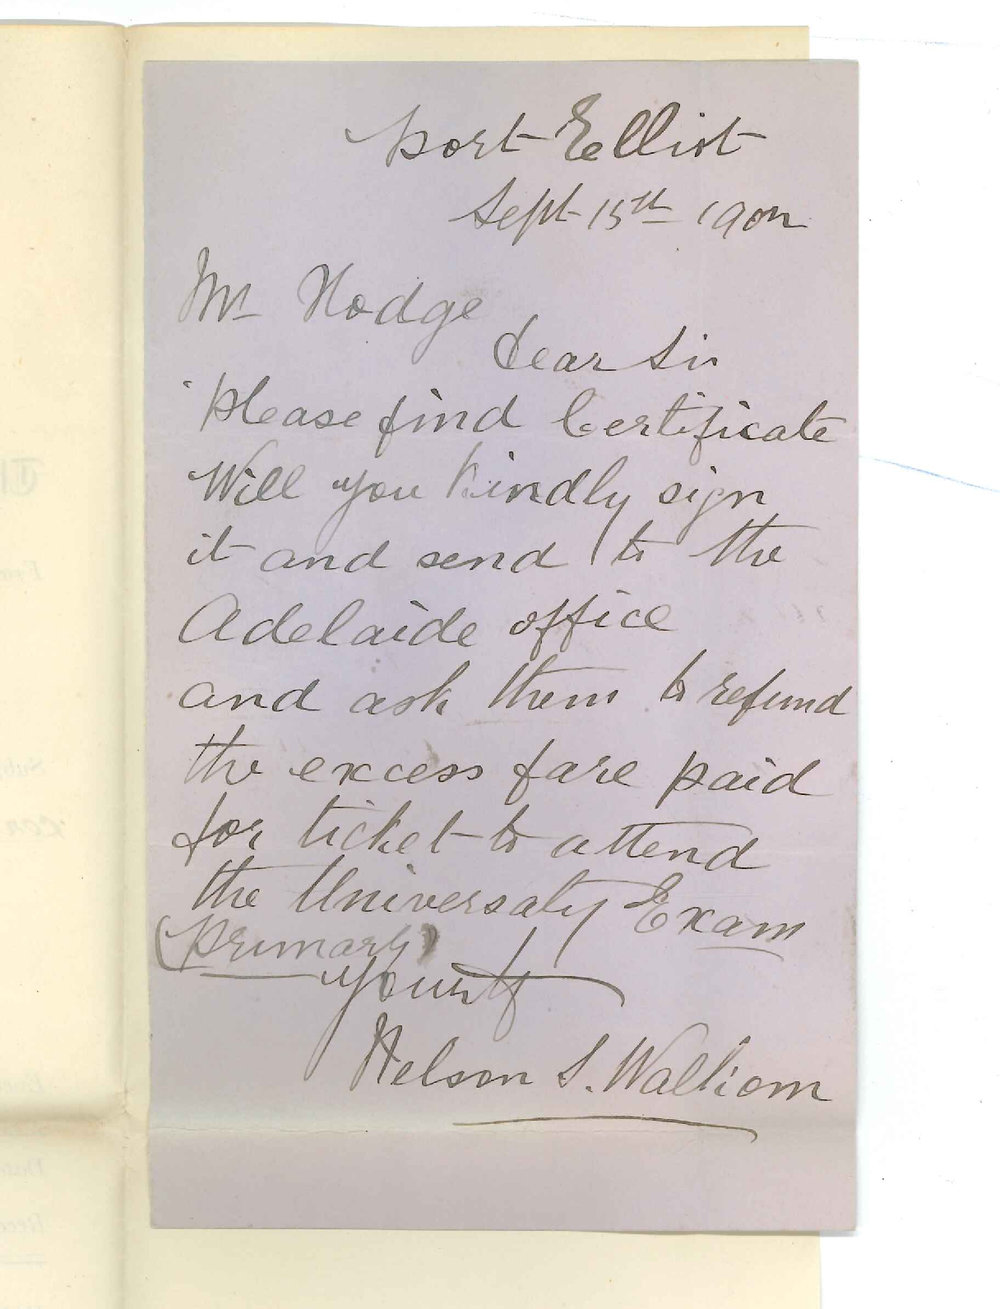 Port Elliot
Sept 15th 1902
Mr Hodge
Dear Sir
Please find Certificate
Will you kindly sign
it and send to the
Adelaide office
and ask them to refund
the excess fare paid
for ticket to attend
the Universaty Exam
(Primary)
Yours
Nelson S.